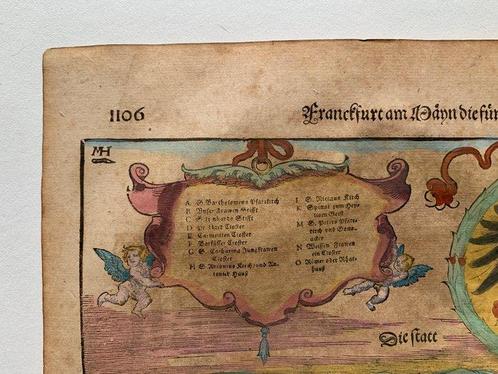 1106
Franckfurt am Mäyn die für
MH
A S. Bartholomeus Pfarrkirch
B Unser Frawen Stifft
C S. Leonhards Stifft
D Prediger Closter
E Carmeliten Closter
F Barfüsser Closter
G S. Catharina Jungfrawen
Closter
H S. Antonius Kirch und An
Hauß
I S. Niclaus Kirch
K Spittal zum Hey-
ligen Geist
M S. Peters Pfarr-
kirch und
acker
N Weissen Frawen
ein Closter
O Römer oder Rhat-
hauß
Die statt